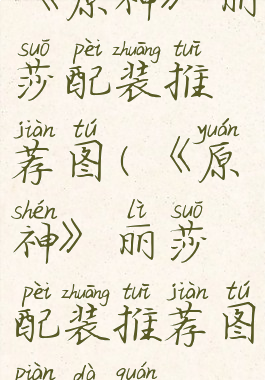 《原神》 丽
suō pèi zhuāng tuī
莎配装推
jiàn tú yuán
荐图(《原
shén lì suō
神》 丽莎
pèi zhuāng tuī jiàn tú
配装推荐图
piàn dà quán